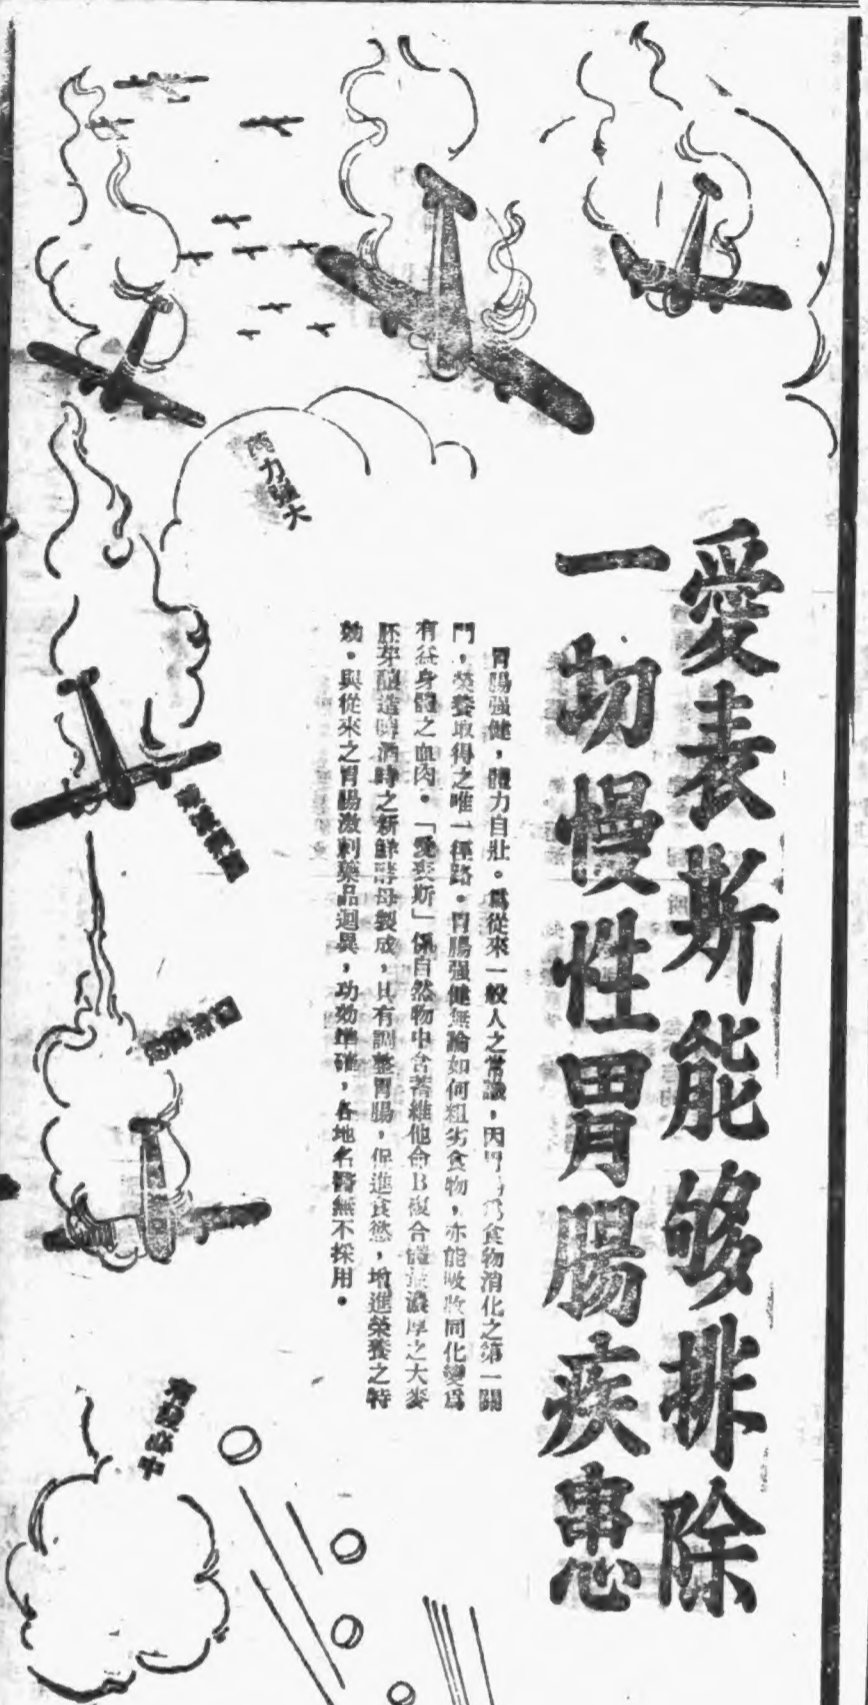 愛表斯能够排除
一切慢性胃腸疾患
胃腸强健，體力自壯。爲從來一般人之常識，因胃腸爲食物消化之第一關
門，榮養取得之唯一徑路。胃腸强健無論如何粗劣食物，亦能吸收同化變爲
有益身體之血肉。「愛表斯」係自然物中含蓄維他命B複合體最濃厚之大麥
胚芽釀造啤酒時之新鮮酵母製成，具有調整胃腸，促進食慾，增進榮養之特
効。與從來之胃腸激刺藥品迥異，功効準確，各地名醫無不採用。
力强大